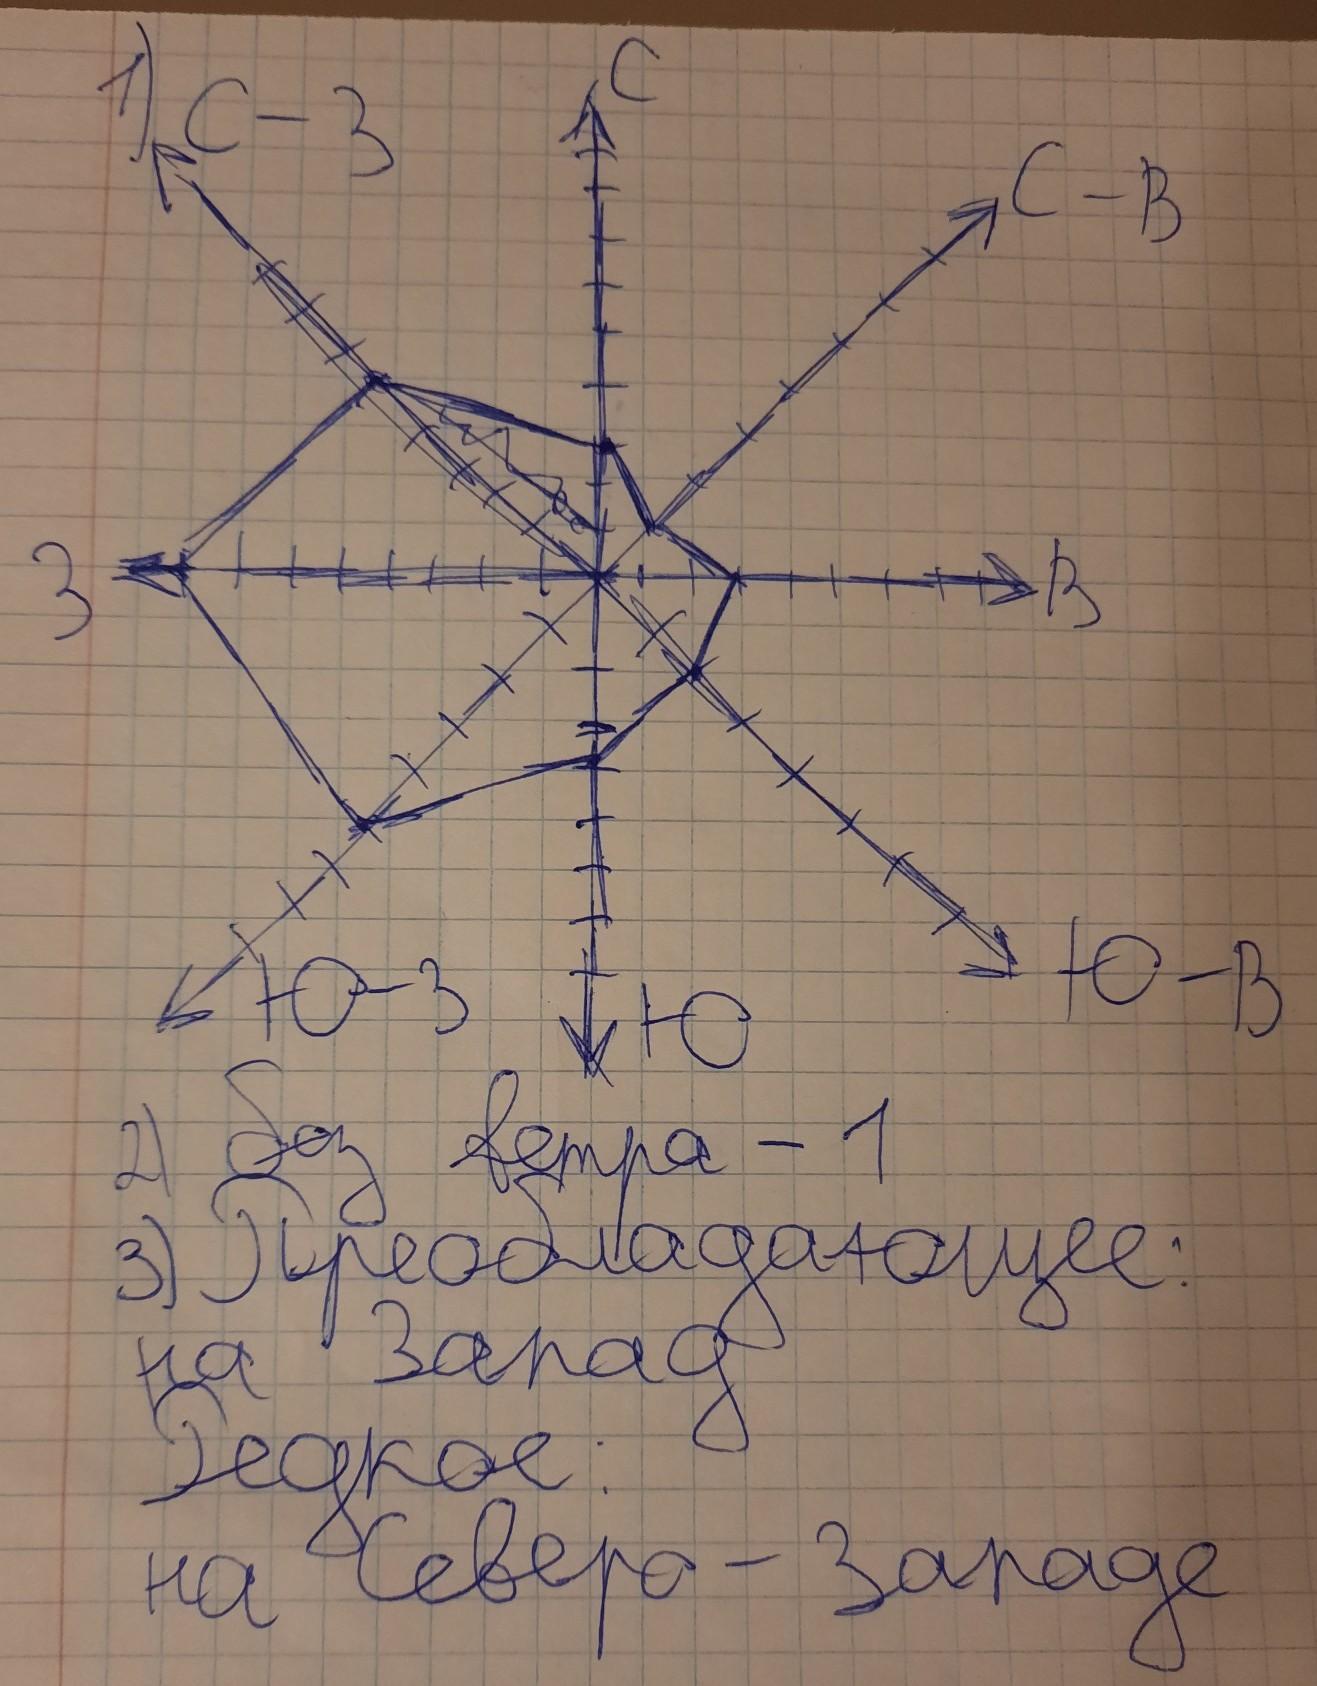 1)
С
С-З
С-В
З
В
Ю-З
Ю
Ю-В
2) без ветра - 1
3) Преобладающее:
на Запад
Редкое:
на Северо-Западе